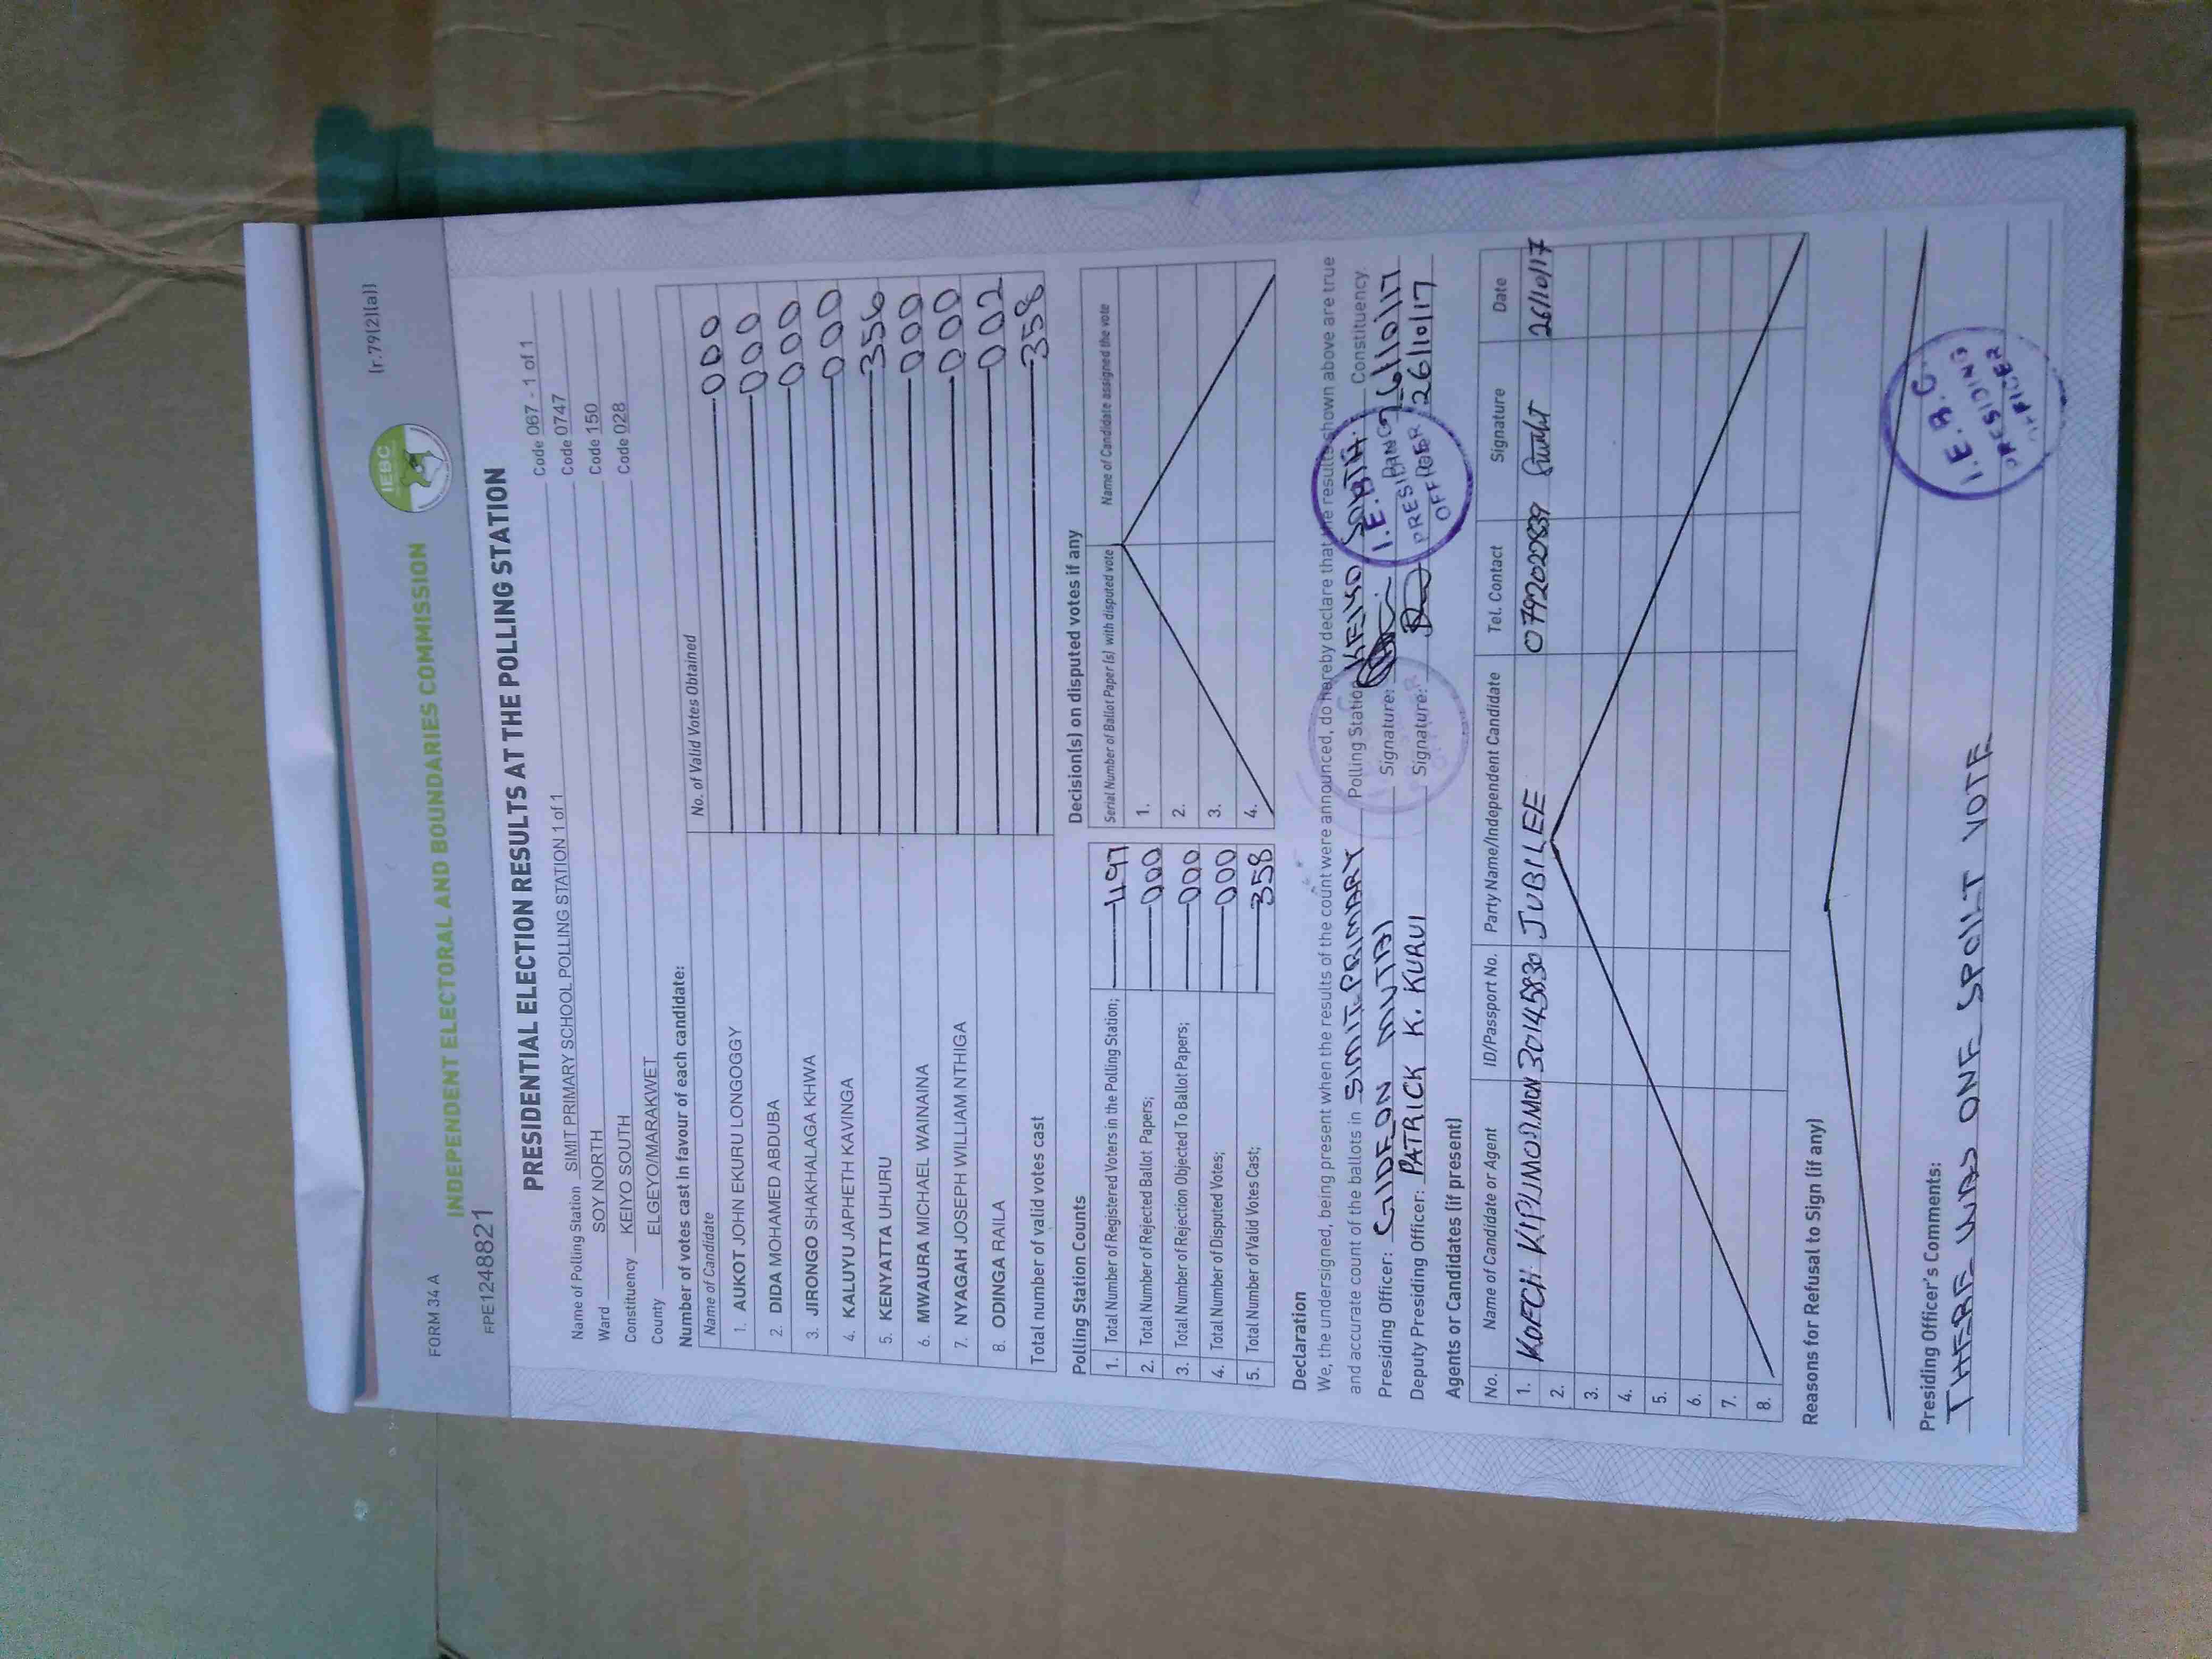 FORM 34 A
[r.79(2)(a)]
IEBC
INDEPENDENT ELECTORAL AND BOUNDARIES COMMISSION
FPE1248821
PRESIDENTIAL ELECTION RESULTS AT THE POLLING STATION
Name of Polling Station SIMIT PRIMARY SCHOOL POLLING STATION 1 of 1 Code 067 - 1 of 1
Ward SOY NORTH Code 0747
Constituency KEIYO SOUTH Code 150
County ELGEYO/MARAKWET Code 028
Number of votes cast in favour of each candidate:
Name of Candidate No. of Valid Votes Obtained
1. AUKOT JOHN EKURU LONGOGGY 000
2. DIDA MOHAMED ABDUBA 000
3. JIRONGO SHAKHALAGA KHWA 000
4. KALUYU JAPHETH KAVINGA 000
5. KENYATTA UHURU 356
6. MWAURA MICHAEL WAINAINA 000
7. NYAGAH JOSEPH WILLIAM NTHIGA 000
8. ODINGA RAILA 002
Total number of valid votes cast 358
Polling Station Counts
1. Total Number of Registered Voters in the Polling Station; 497
2. Total Number of Rejected Ballot Papers; 000
3. Total Number of Rejection Objected To Ballot Papers; 000
4. Total Number of Disputed Votes; 000
5. Total Number of Valid Votes Cast; 358
Decision(s) on disputed votes if any
Serial Number of Ballot Paper(s) with disputed vote Name of Candidate assigned the vote
1.
2.
3.
4.
Declaration
We, the undersigned, being present when the results of the count were announced, do hereby declare that the results shown above are true
and accurate count of the ballots in SIMIT PRIMARY Polling Station KEIYO SOUTH Constituency
Presiding Officer: GIDEON MUTAI Signature: 26/10/17
Deputy Presiding Officer: PATRICK K. KURUI Signature: 26/10/17
PRESIDING
OFFICER
Agents or Candidates (if present)
No. Name of Candidate or Agent ID/Passport No. Party Name/Independent Candidate Tel. Contact Signature Date
1. KOECH 30145830 JUBILEE 0792022839 26/10/17
2.
3.
4.
5.
6.
7.
8.
Reasons for Refusal to Sign (if any)
Presiding Officer's Comments:
THERE WAS ONE SPOILT VOTE
I.E.B.C.
PRESIDING
OFFICER